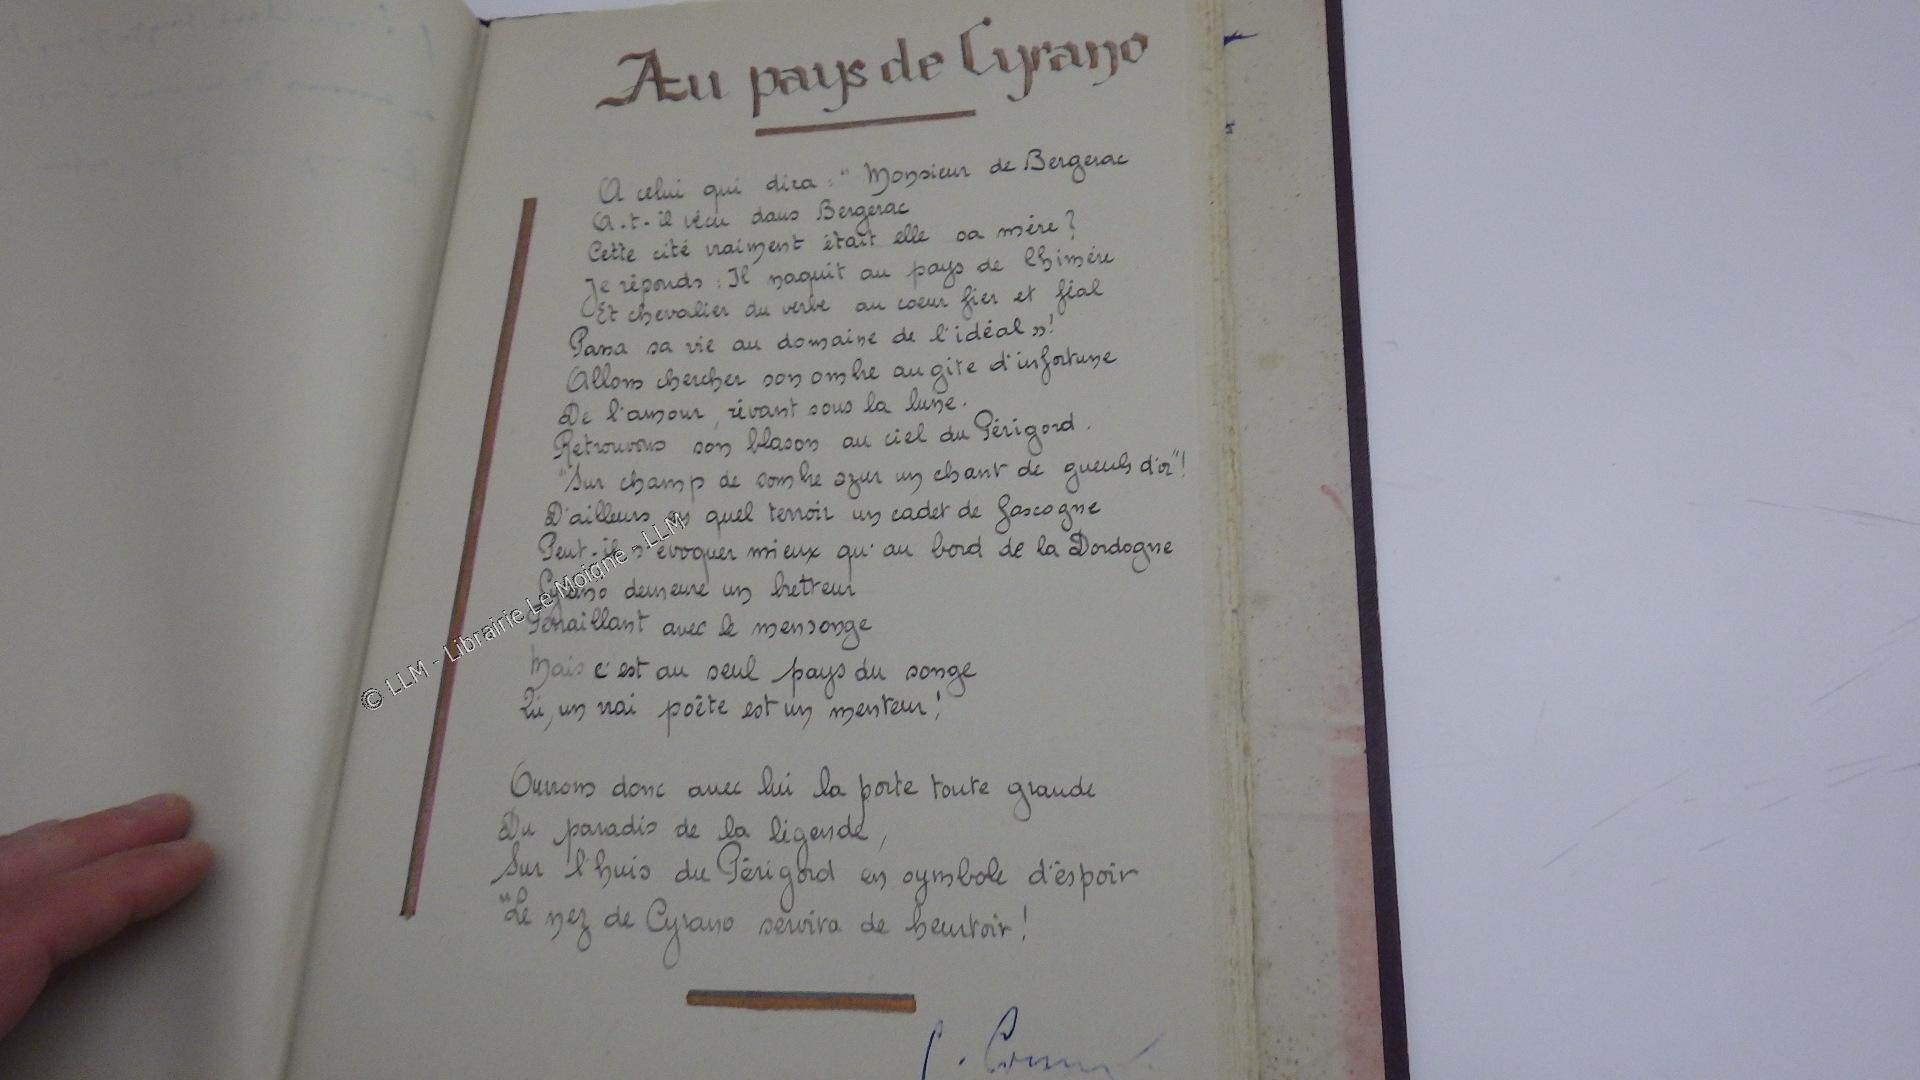 Au pays de Cyrano
A celui qui dira : "Monsieur de Bergerac
A.t-il vécu dans Bergerac
Cette cité vraiment était elle sa mère ?
Je réponds : Il naquit au pays de Chimère
Et chevalier du verbe au coeur fier et féal
Passa sa vie au domaine de l'idéal » !
Allons chercher son ombre au gite d'infortune
De l'amour, rêvant sous la lune.
Retrouvons son blason au ciel du Périgord.
"Sur champ de sombre azur un chant de gueuls d'or" !
D'ailleurs en quel terroir un cadet de Gascogne
Peut-il s'évoquer mieux qu'au bord de la Dordogne
Cyrano demeure un bretteur
Ferraillant avec le mensonge
Mais c'est au seul pays du songe
Qu'un vrai poète est un menteur !
Ouvrons donc avec lui la porte toute grande
Du paradis de la légende,
Sur l'huis du Périgord en symbole d'éspoir
"Le nez de Cyrano servira de heurtoir !
© LLM - Librairie Le Moigne - LLM